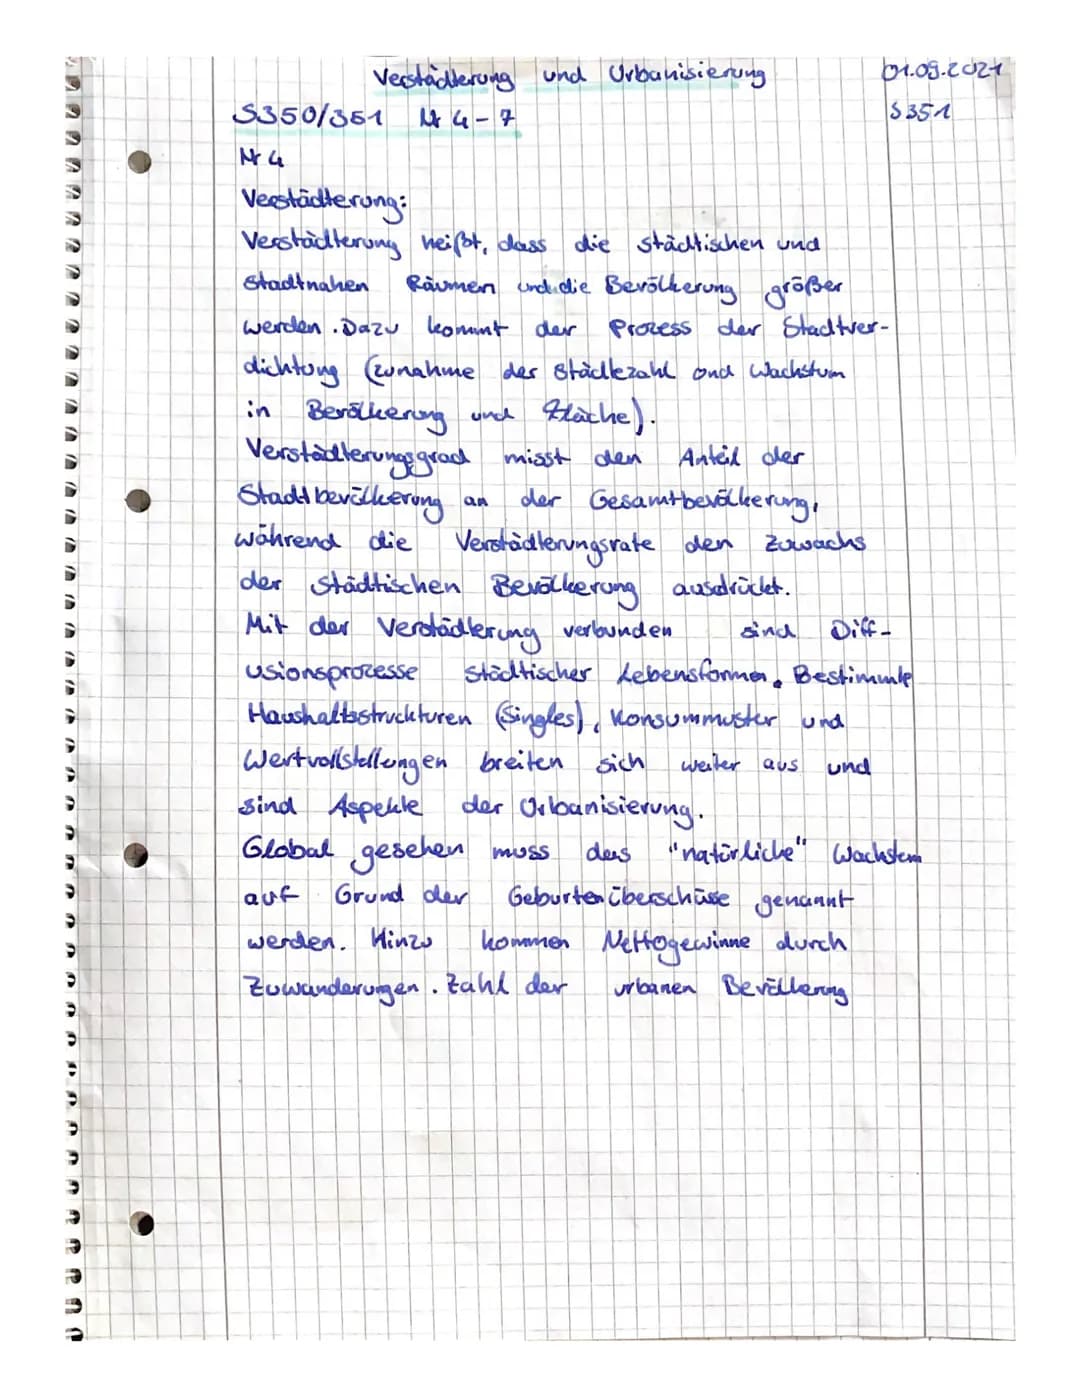 Verstädterung und Urbanisierung 01.09.2021
S350/351 Nr 4-7 S351
Nr 4
Verstädterung:
Verstädterung heißt, dass die städtischen und
stadtnahen Räumen und die Bevölkerung größer
werden. Dazu kommt der Prozess der Stadtver-
dichtung (zunahme der städtezahl und Wachstum
in Bevölkerung und Fläche).
Verstädterungsgrad misst den Anteil der
Stadtbevölkerung an der Gesamtbevölkerung,
während die Verstädterungsrate den Zuwachs
der städtischen Bevölkerung ausdrückt.
Mit der Verstädterung verbunden sind Diff-
usionsprozesse städtischer Lebensformen. Bestimmte
Haushaltsstruckturen (Singles), Konsummuster und
Wertvollstellungen breiten sich weiter aus und
sind Aspekte der Urbanisierung.
Global gesehen muss das "natürliche" Wachstum
auf Grund der Geburtenüberschüsse genannt
werden. Hinzu kommen Nettogewinne durch
Zuwanderungen. Zahl der urbanen Bevölkerung